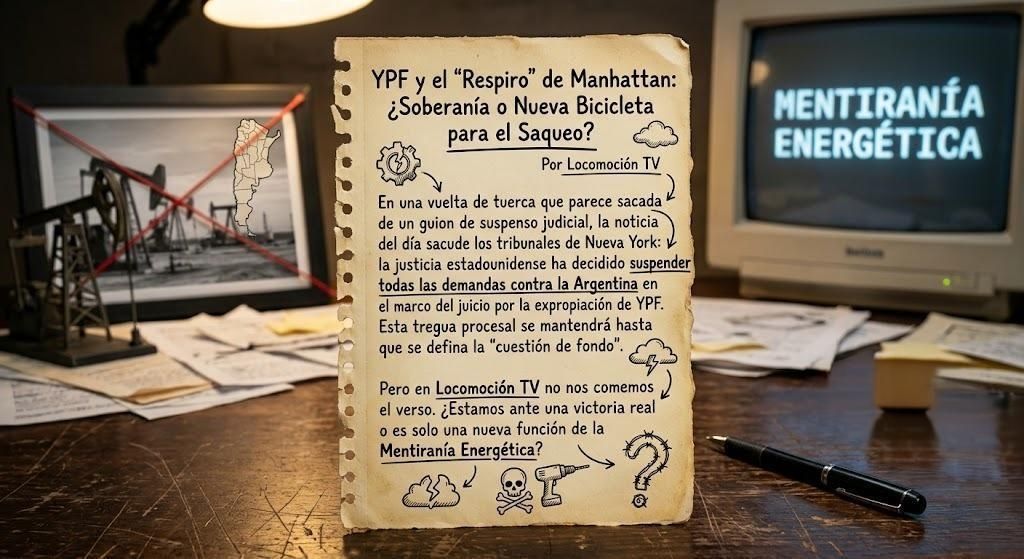 YPF y el "Respiro" de Manhattan:
¿Soberanía o Nueva Bicicleta
para el Saqueo?
Por Locomoción TV
En una vuelta de tuerca que parece sacada
de un guion de suspenso judicial, la noticia
del día sacude los tribunales de Nueva York:
la justicia estadounidense ha decidido suspender
todas las demandas contra la Argentina en
el marco del juicio por la expropiación de YPF.
Esta tregua procesal se mantendrá hasta
que se defina la "cuestión de fondo".
Pero en Locomoción TV no nos comemos
el verso. ¿Estamos ante una victoria real
o es solo una nueva función de la
Mentiranía Energética?
MENTIRANÍA
ENERGÉTICA